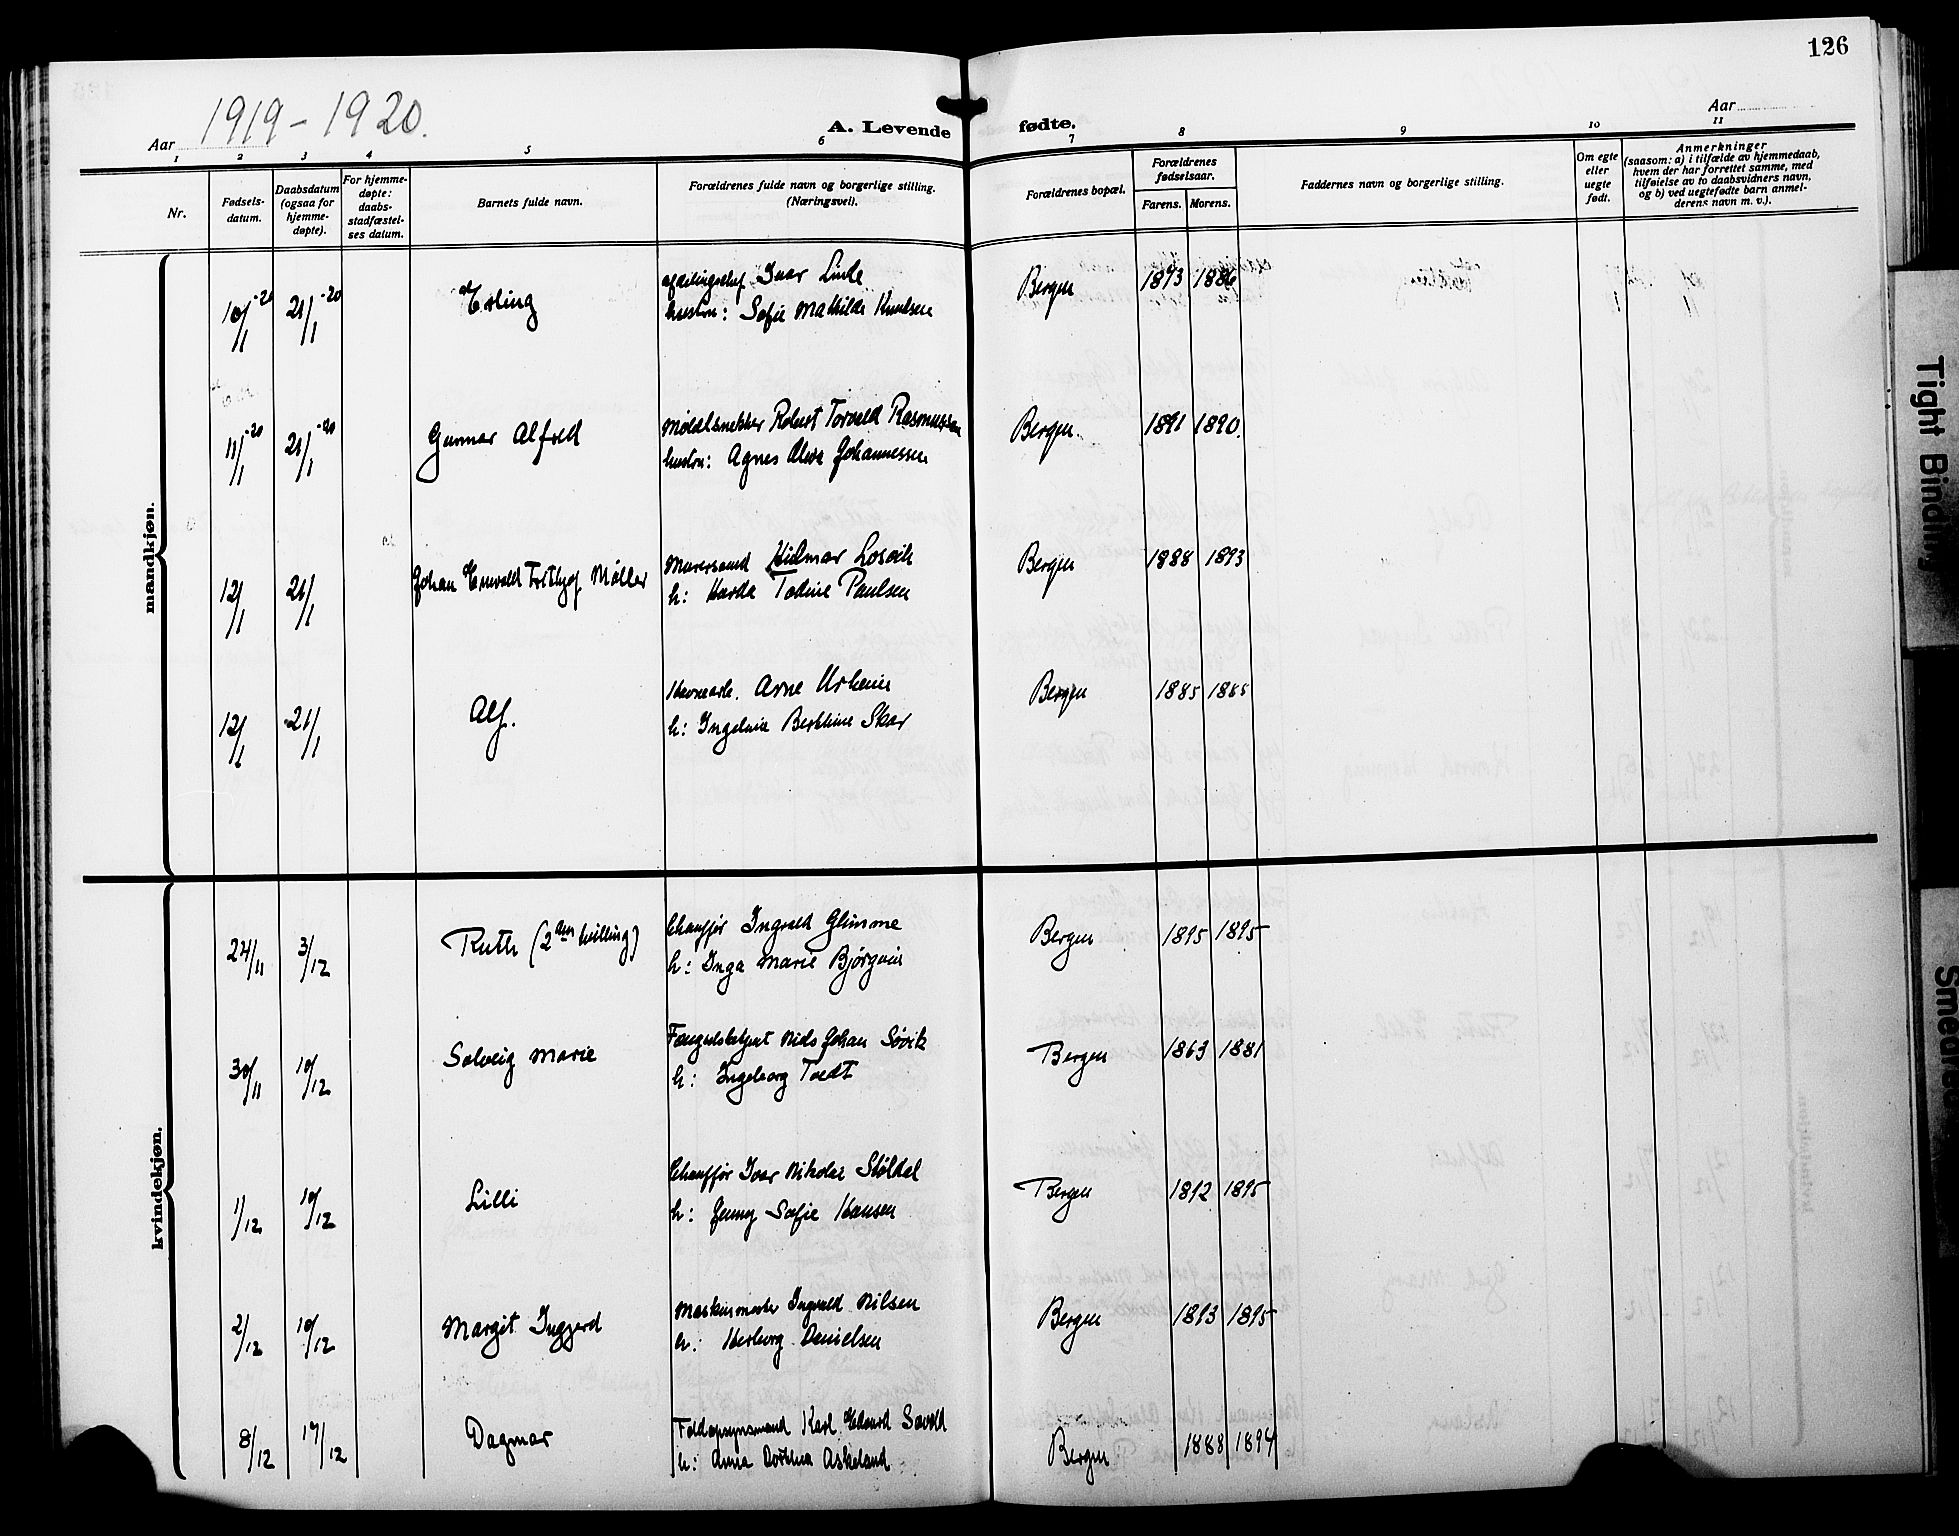 126
1919 - 1920.
Aar
A. Levende fødte.
Aar
1 2 3 4 5 6 7 8 9 10 11
Nr.
Fødsels-
datum.
Daabsdatum
(ogsaa for
hjemme-
døpte).
For hjemme-
døpte:
daabs-
stadfæstel-
ses datum.
Barnets fulde navn.
Forældrenes fulde navn og borgerlige stilling.
(Næringsvei).
Forældrenes bopæl.
Forældrenes
fødselsaar.
Farens. Morens.
Faddernes navn og borgerlige stilling.
Om egte
eller
uegte
født.
Anmerkninger
(saasom: a) i tilfælde av hjemmedaab,
hvem der har forrettet samme, med
tilføielse av to daabsvidners navn,
og b) ved uegtefødte barn anmel-
derens navn m. v.).
mandkjøn.
10/1 -20 21/1 -20 Erling Ivar Linde Bergen 1893 1886
hustru: Sofie Mathilde Knudsen
11/1 -20 21/1 -20 Gunnar Alfred Modelsnekker Robert Torvald Rasmussen Bergen. 1891 1890.
hustru: Agnes Johannessen
12/1 21/1 Johan Frithjof Møller Murersvend Hidmar Losvik Bergen 1888 1893
h: Harda Todine Paulsen
12/1 21/1 Alf. Havnearb. Arne Urheim Bergen 1885 1885
h: Berthine Skar
kvindekjøn.
24/11 3/12 Ruth (2den tvilling) Chauffør Ingvald Glimme Bergen 1895 1895
h: Inga Marie Bjørgvin
30/11 10/12 Solveig Marie Fængselsbetjent Nils Johan Søvik Bergen 1863 1881
h: Ingeborg Tvedt
1/12 10/12 Lilli Chauffør Ivar Nikolai Bergen 1892 1895
h: Jenny Sofie Hansen
2/12 10/12 Margit Ingjerd Maskinmester Ingvald Nilsen Bergen 1893 1895
h: Herborg Danielsen
8/12 17/12 Dagmar Toldopsynsmand Karl Edvard Bergen 1888 1894
h: Anna Dorthea Askeland
Tight Binding